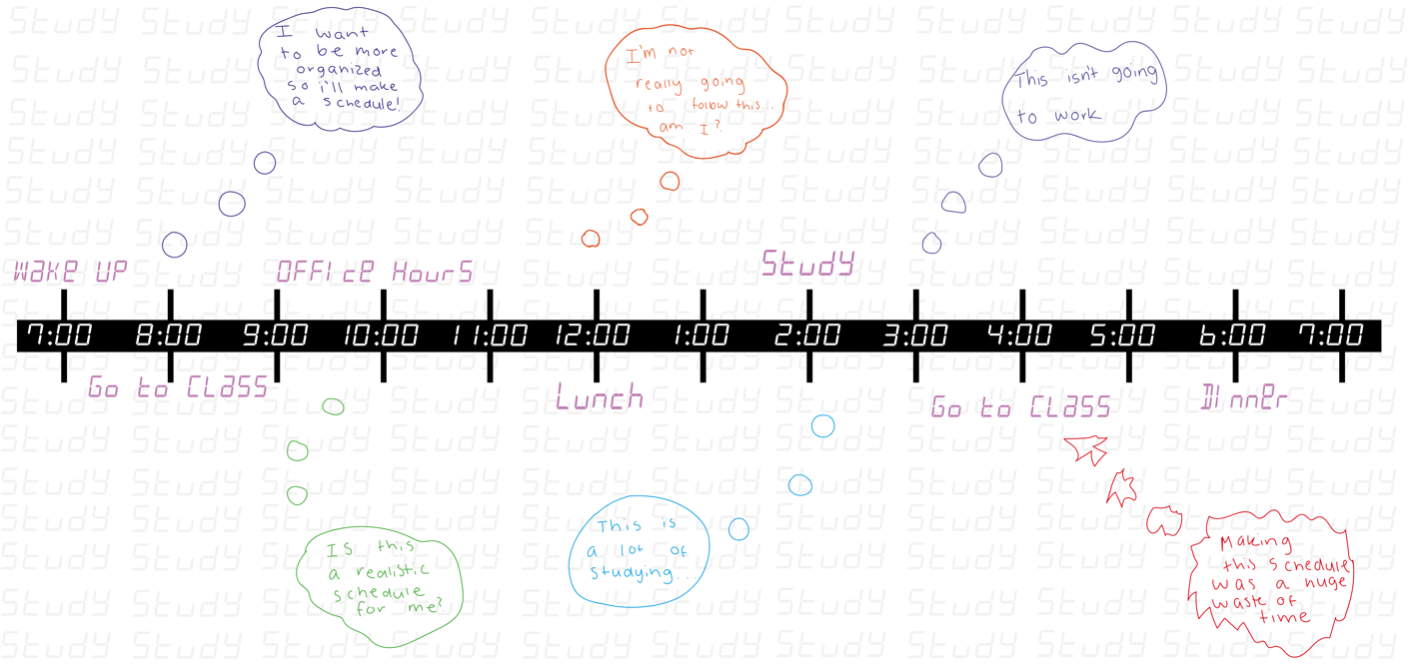 I want
to be more
organized
so i'll make
a schedule!
I'm not
really going
to follow this...
am I?
This isn't going
to work
Wake UP
OFFice Hours
Study
7:00 8:00 9:00 10:00 11:00 12:00 1:00 2:00 3:00 4:00 5:00 6:00 7:00
Go to CLass
Lunch
Go to CLass
Dinner
Is this
a realistic
schedule
for me?
This is
a lot of
studying...
Making
this schedule
was a huge
waste of
time
Study Study Study Study Study Study Study Study Study Study Study